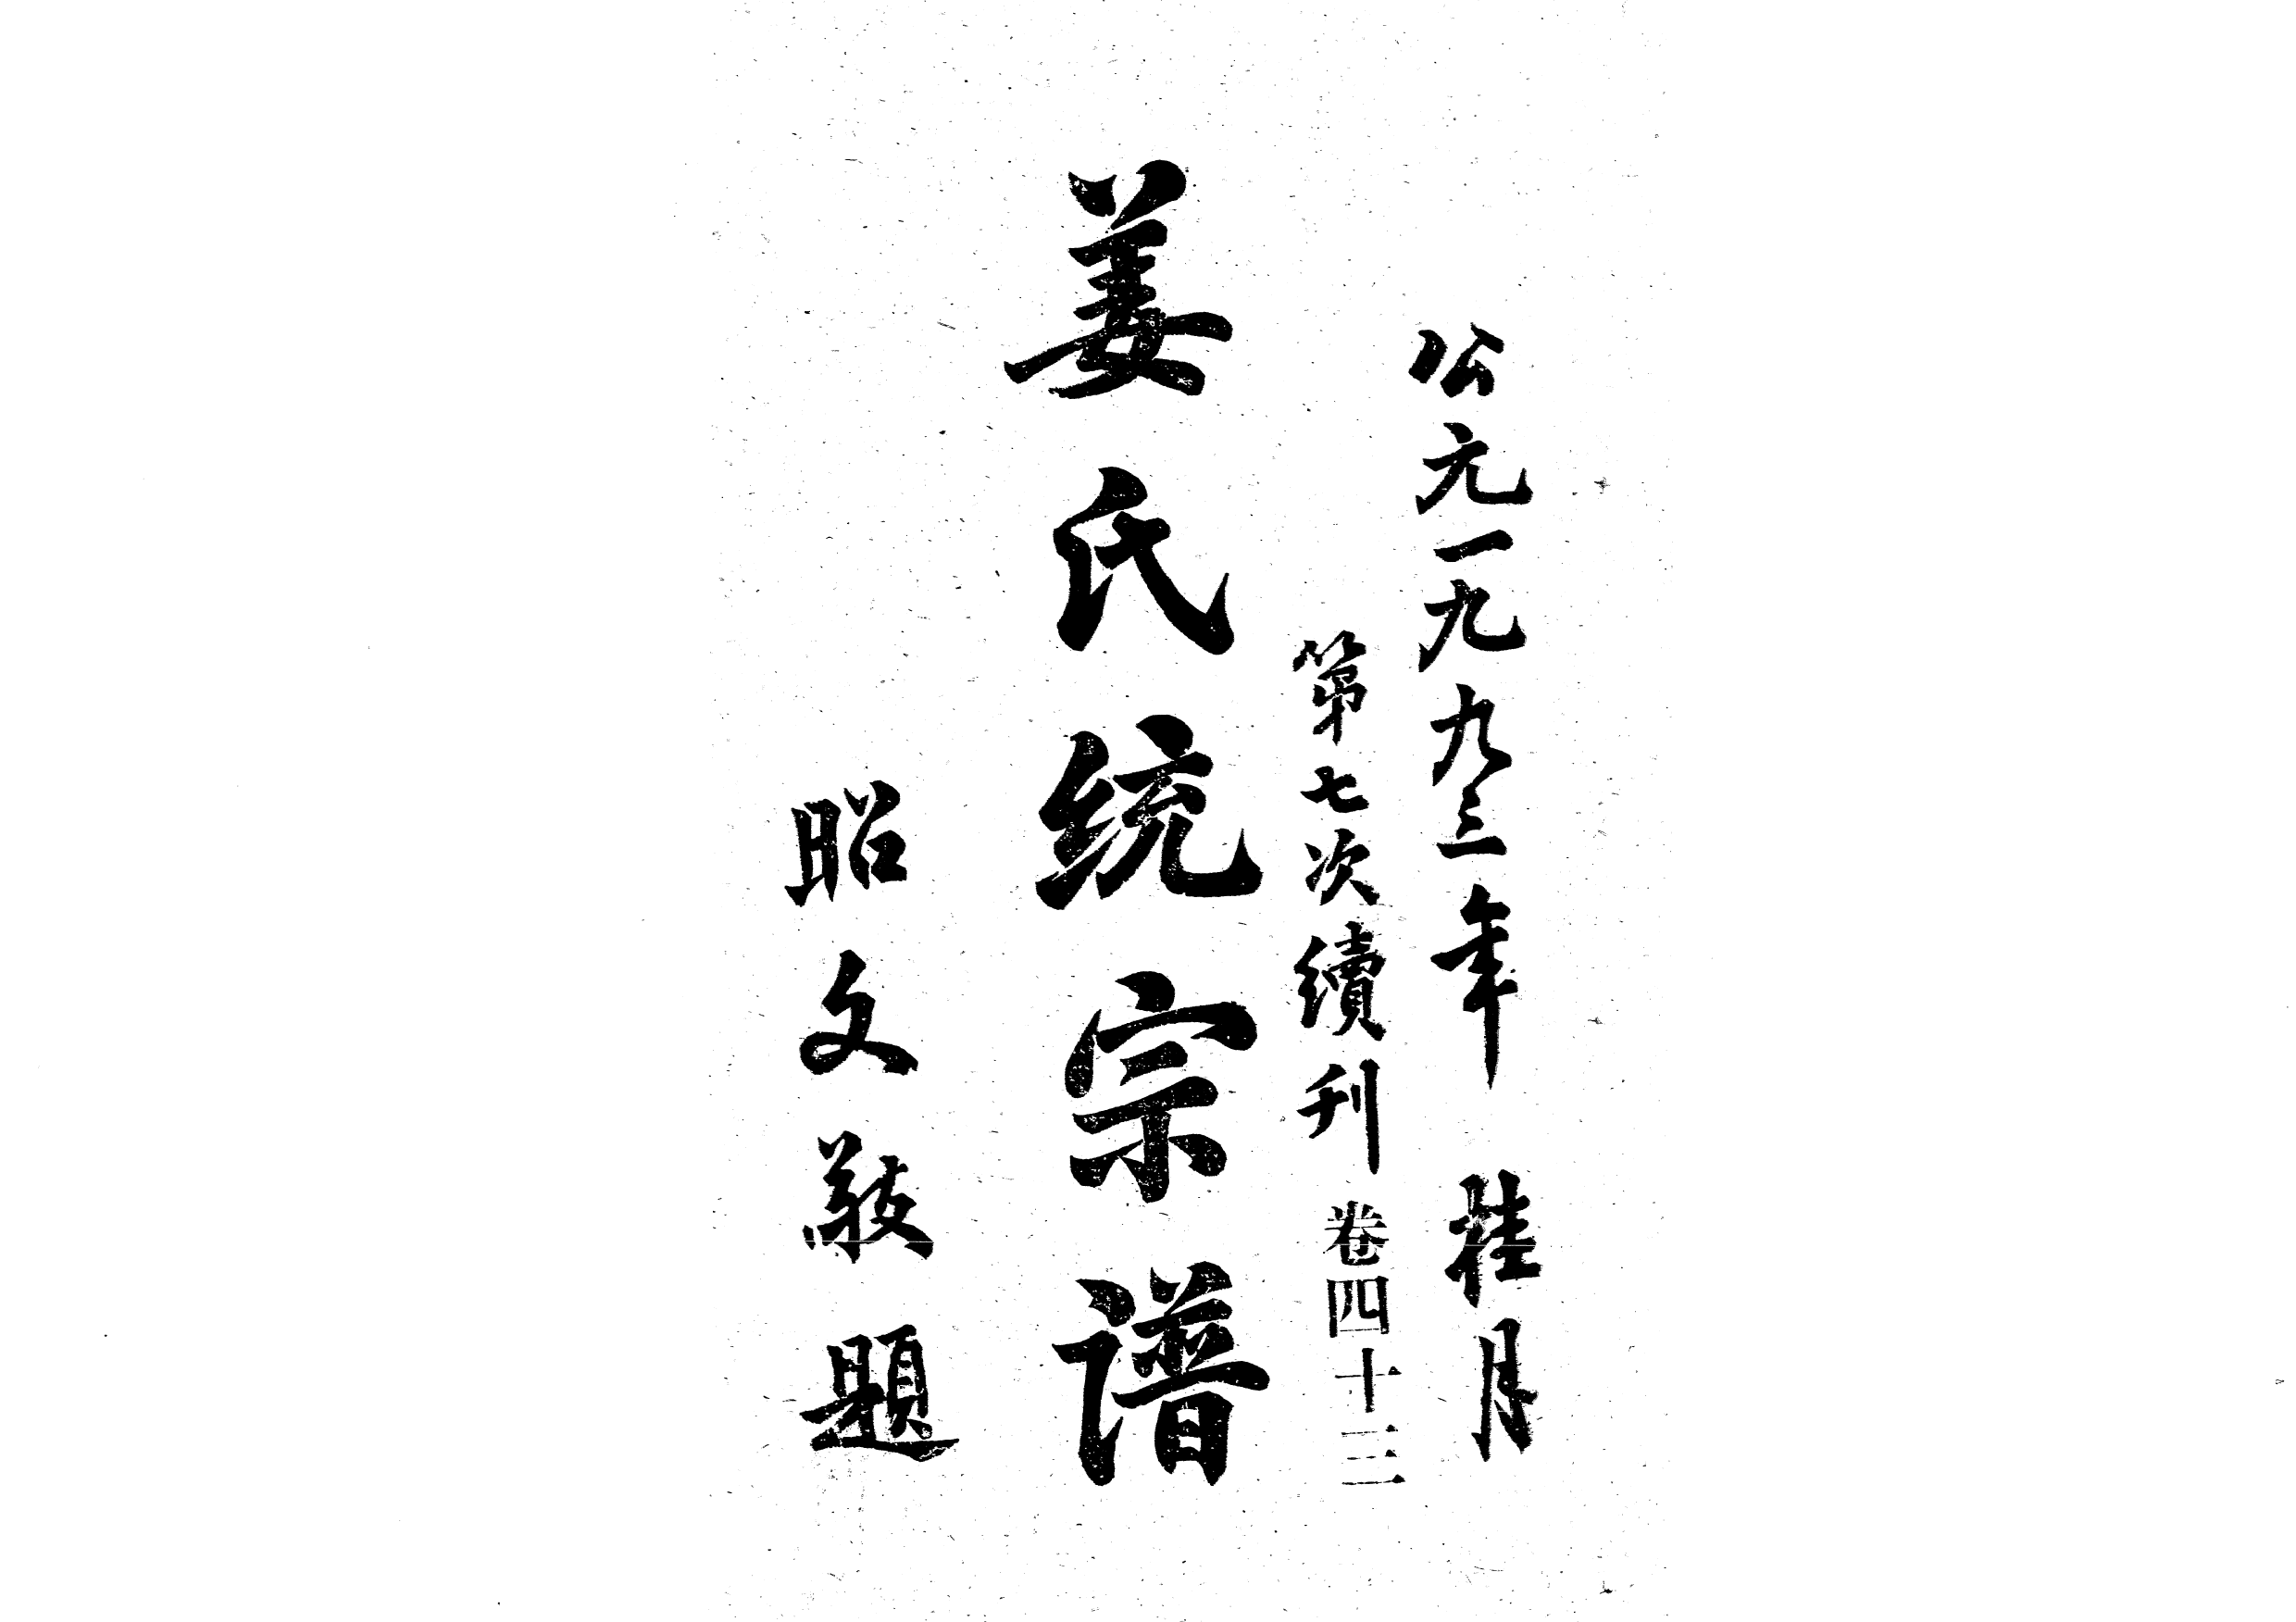 公元一九九三年 桂月
第七次續刊 卷四十三
姜氏统宗谱
昭文敬題